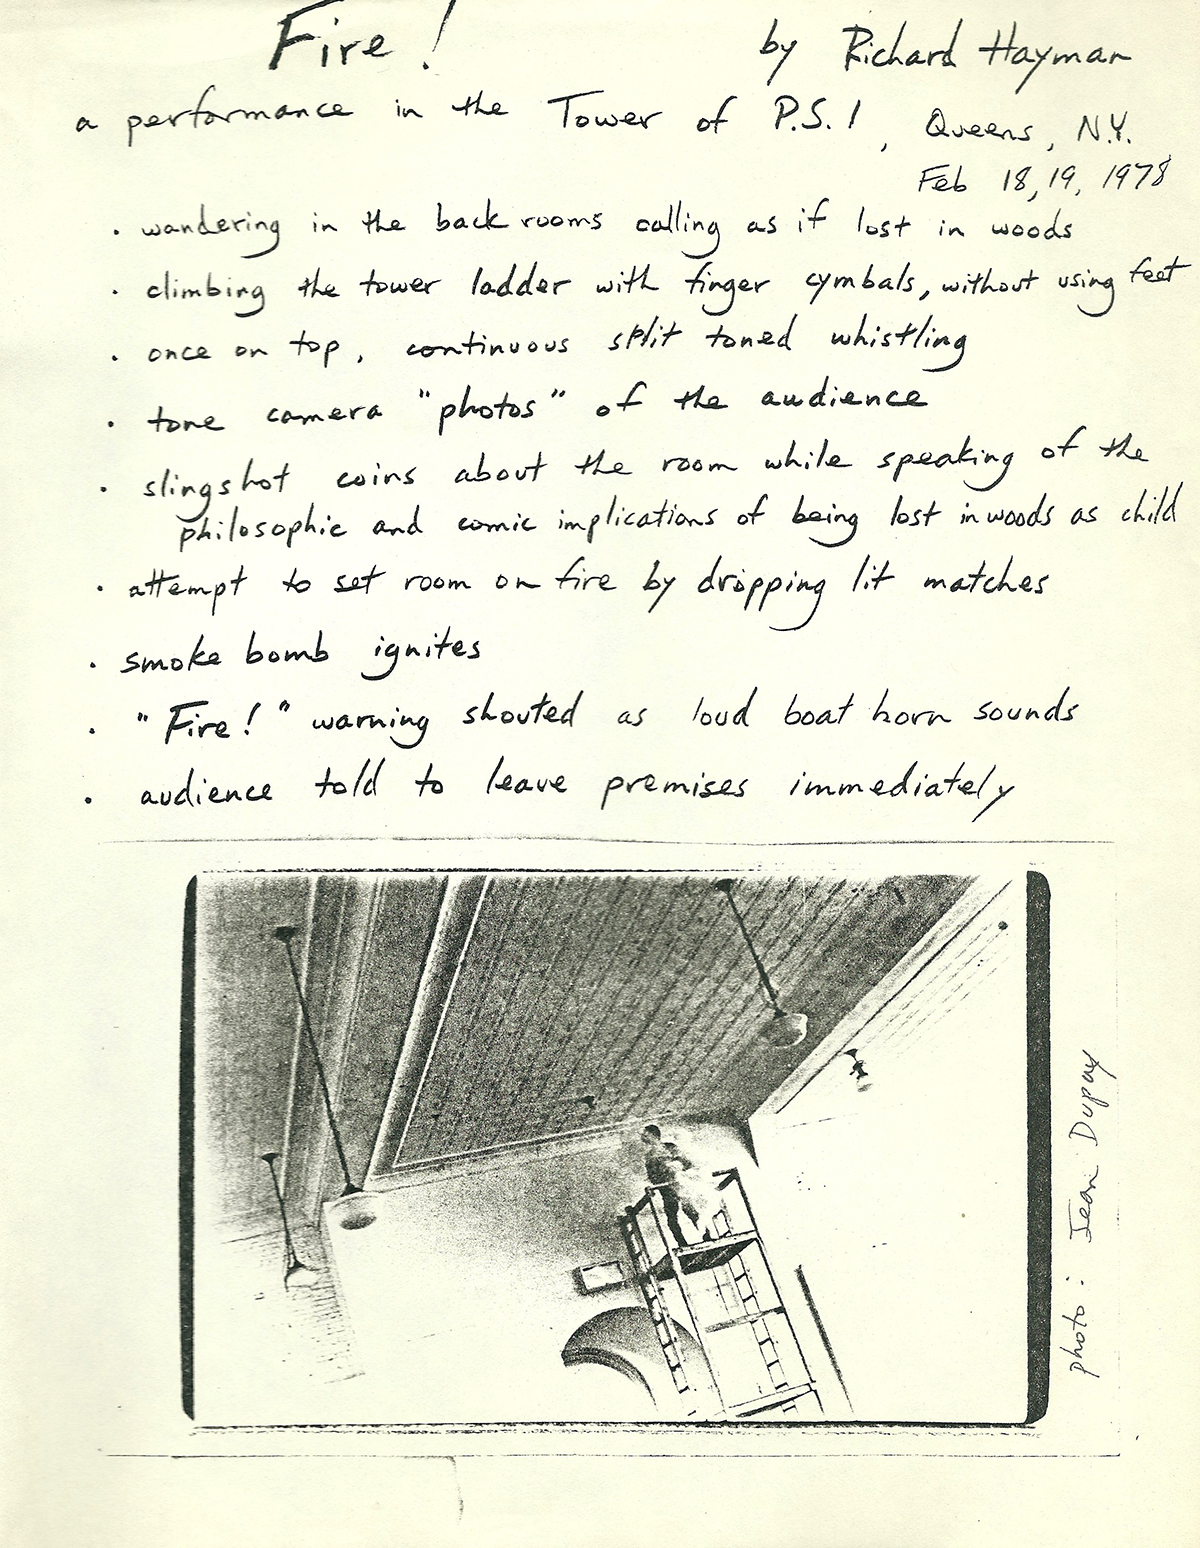 Fire! by Richard Hayman
a performance in the Tower of P.S.1, Queens, N.Y.
Feb 18, 19, 1978
· wandering in the back rooms calling as if lost in woods
· climbing the tower ladder with finger cymbals, without using feet
· once on top, continuous split toned whistling
· tone camera "photos" of the audience
· slingshot coins about the room while speaking of the
philosophic and comic implications of being lost in woods as child
· attempt to set room on fire by dropping lit matches
· smoke bomb ignites
· "Fire!" warning shouted as loud boat horn sounds
· audience told to leave premises immediately
photo: Jean Dupuy